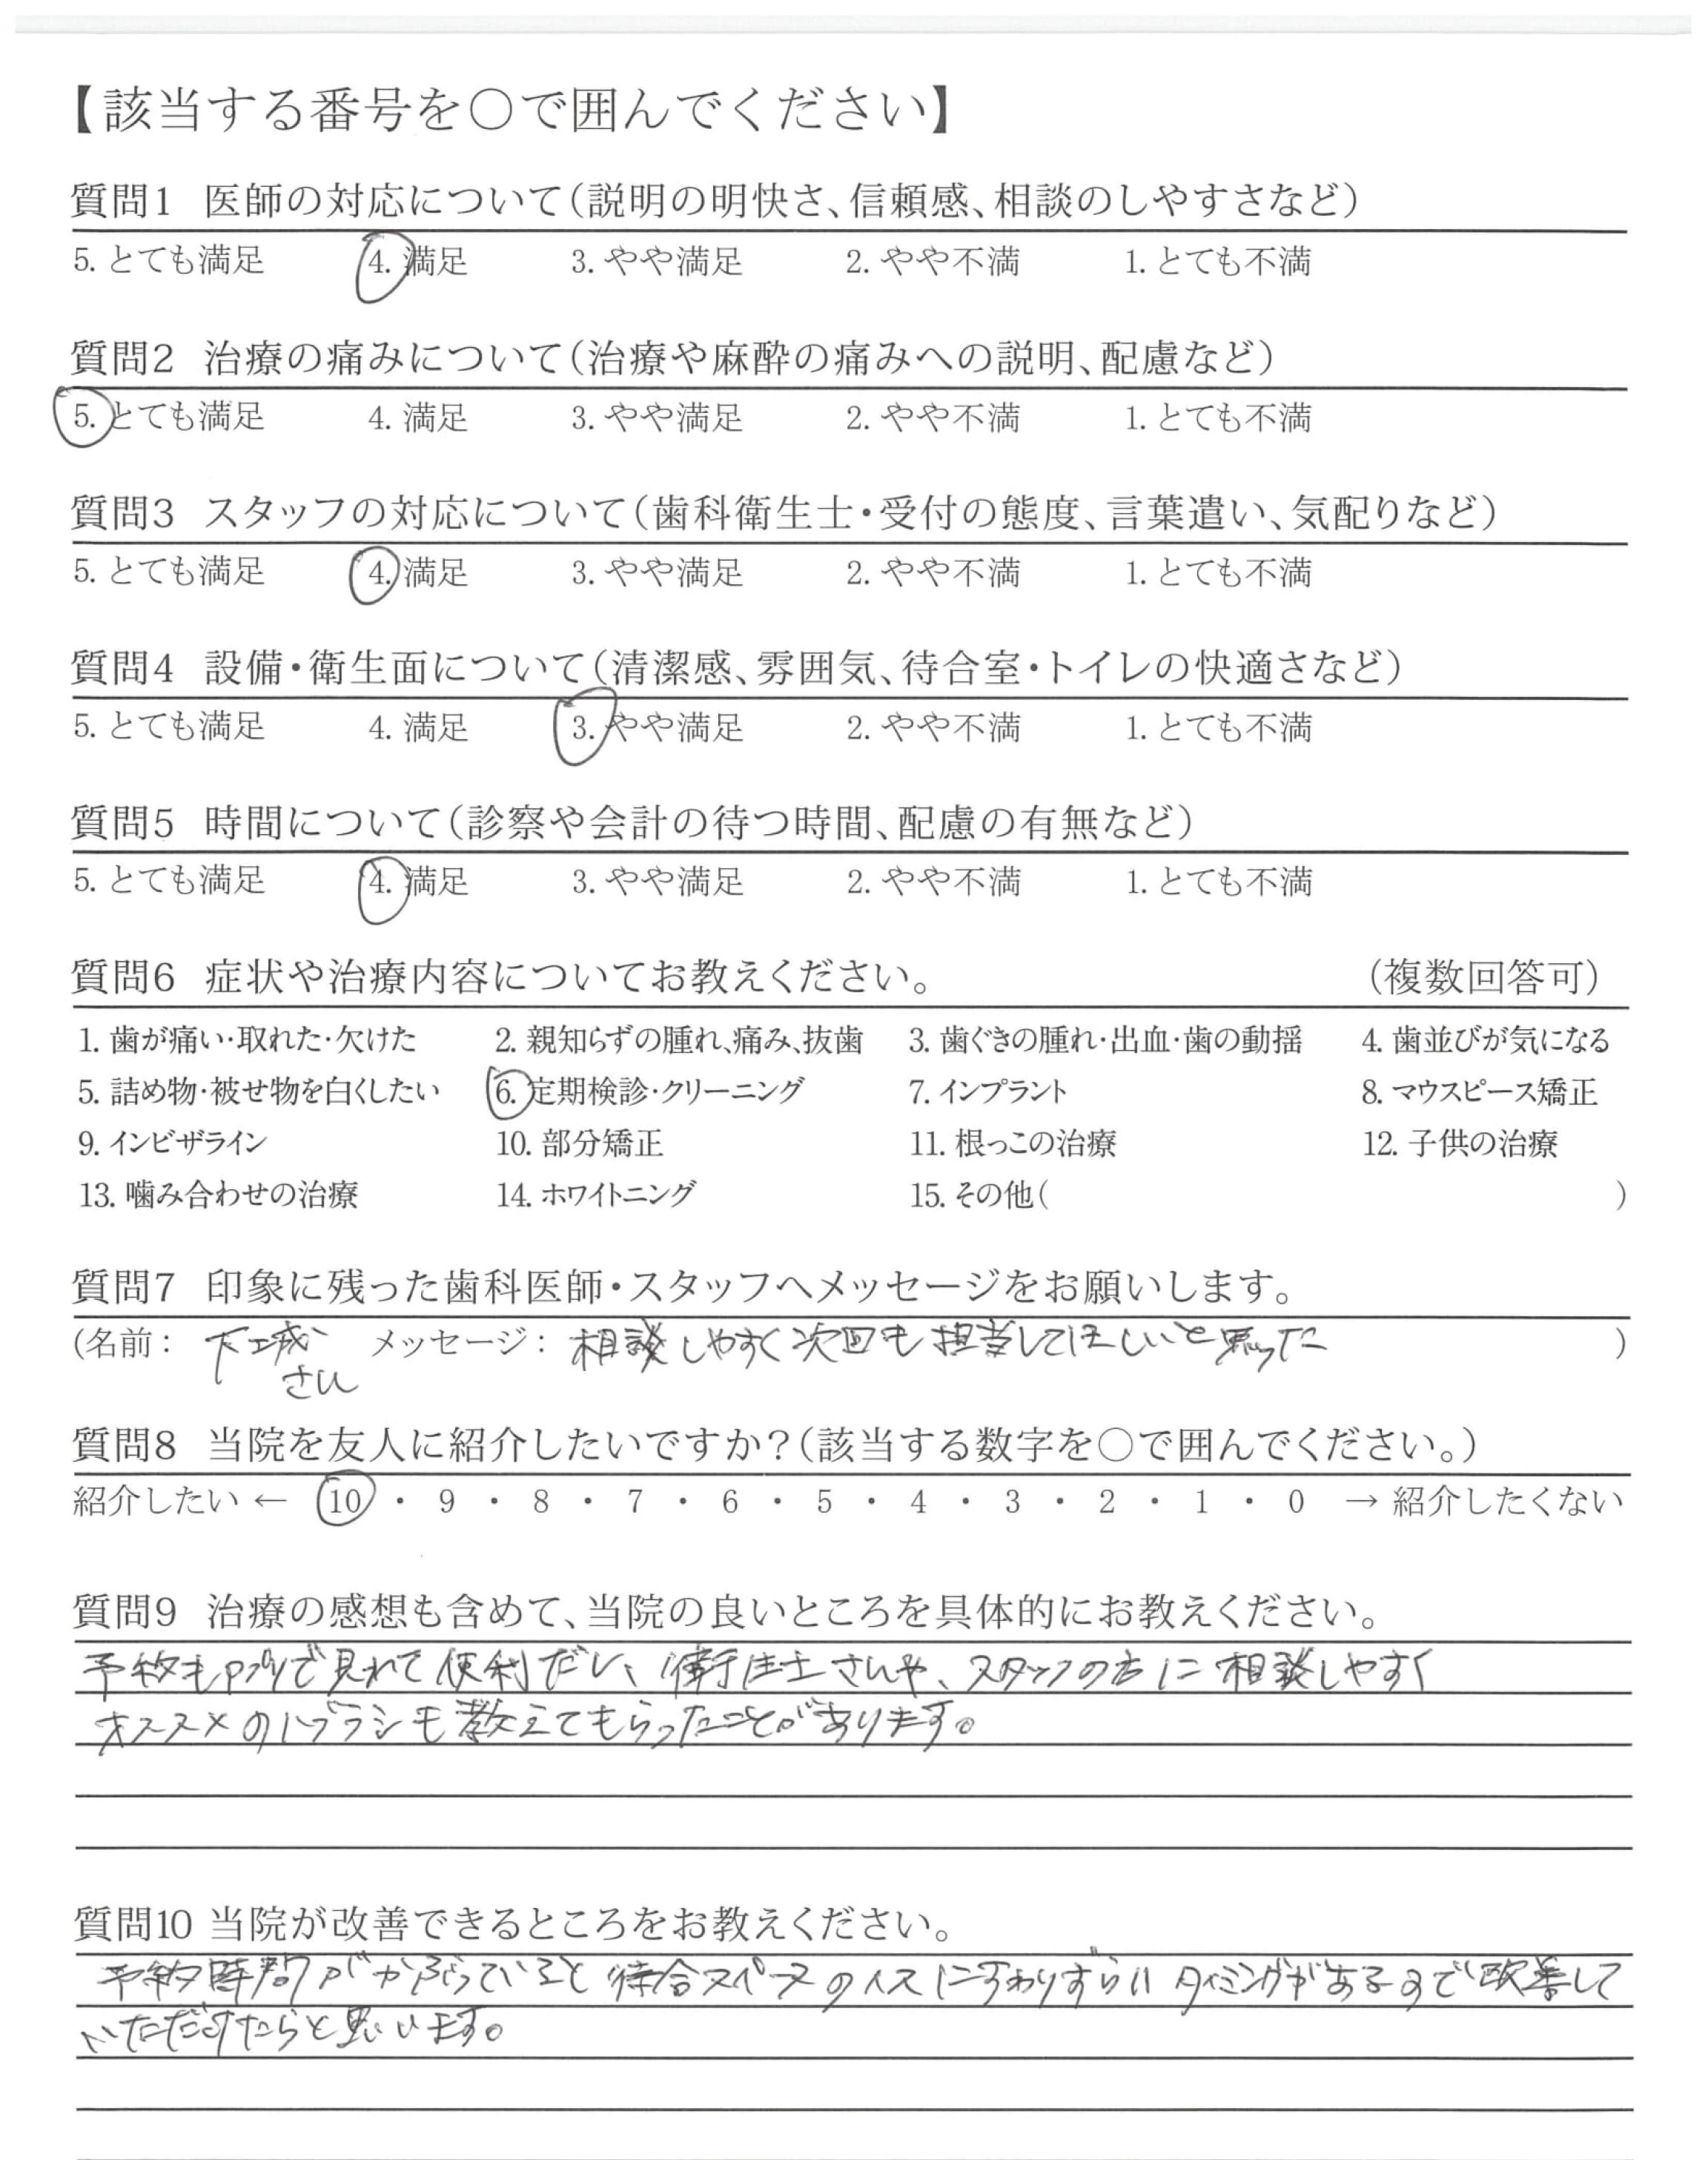 【該当する番号を○で囲んでください】
質問1 医師の対応について(説明の明快さ、信頼感、相談のしやすさなど)
5. とても満足 4. 満足 3. やや満足 2. やや不満 1. とても不満
質問2 治療の痛みについて(治療や麻酔の痛みへの説明、配慮など)
5. とても満足 4. 満足 3. やや満足 2. やや不満 1. とても不満
質問3 スタッフの対応について(歯科衛生士・受付の態度、言葉遣い、気配りなど)
5. とても満足 4. 満足 3. やや満足 2. やや不満 1. とても不満
質問4 設備・衛生面について(清潔感、雰囲気、待合室・トイレの快適さなど)
5. とても満足 4. 満足 3. やや満足 2. やや不満 1. とても不満
質問5 時間について(診察や会計の待つ時間、配慮の有無など)
5. とても満足 4. 満足 3. やや満足 2. やや不満 1. とても不満
質問6 症状や治療内容についてお教えください。 (複数回答可)
1. 歯が痛い・取れた・欠けた 2. 親知らずの腫れ、痛み、抜歯 3. 歯ぐきの腫れ・出血・歯の動揺 4. 歯並びが気になる
5. 詰め物・被せ物を白くしたい 6. 定期検診・クリーニング 7. インプラント 8. マウスピース矯正
9. インビザライン 10. 部分矯正 11. 根っこの治療 12. 子供の治療
13. 噛み合わせの治療 14. ホワイトニング 15. その他( )
質問7 印象に残った歯科医師・スタッフへメッセージをお願いします。
(名前: 下城 メッセージ: 相談しやすく次回も担当してほしいと思った )
さん
質問8 当院を友人に紹介したいですか?(該当する数字を○で囲んでください。)
紹介したい ← 10 ・ 9 ・ 8 ・ 7 ・ 6 ・ 5 ・ 4 ・ 3 ・ 2 ・ 1 ・ 0 → 紹介したくない
質問9 治療の感想も含めて、当院の良いところを具体的にお教えください。
予約もアプリで見れて便利だし、衛生士さんや、スタッフの方に相談しやすく
オススメのハブラシも教えてもらったことがあります。
質問10 当院が改善できるところをお教えください。
予約時間がかぶっていると待合スペースのイスにすわりずらいタイミングがあるので改善して
いただけたらと思います。